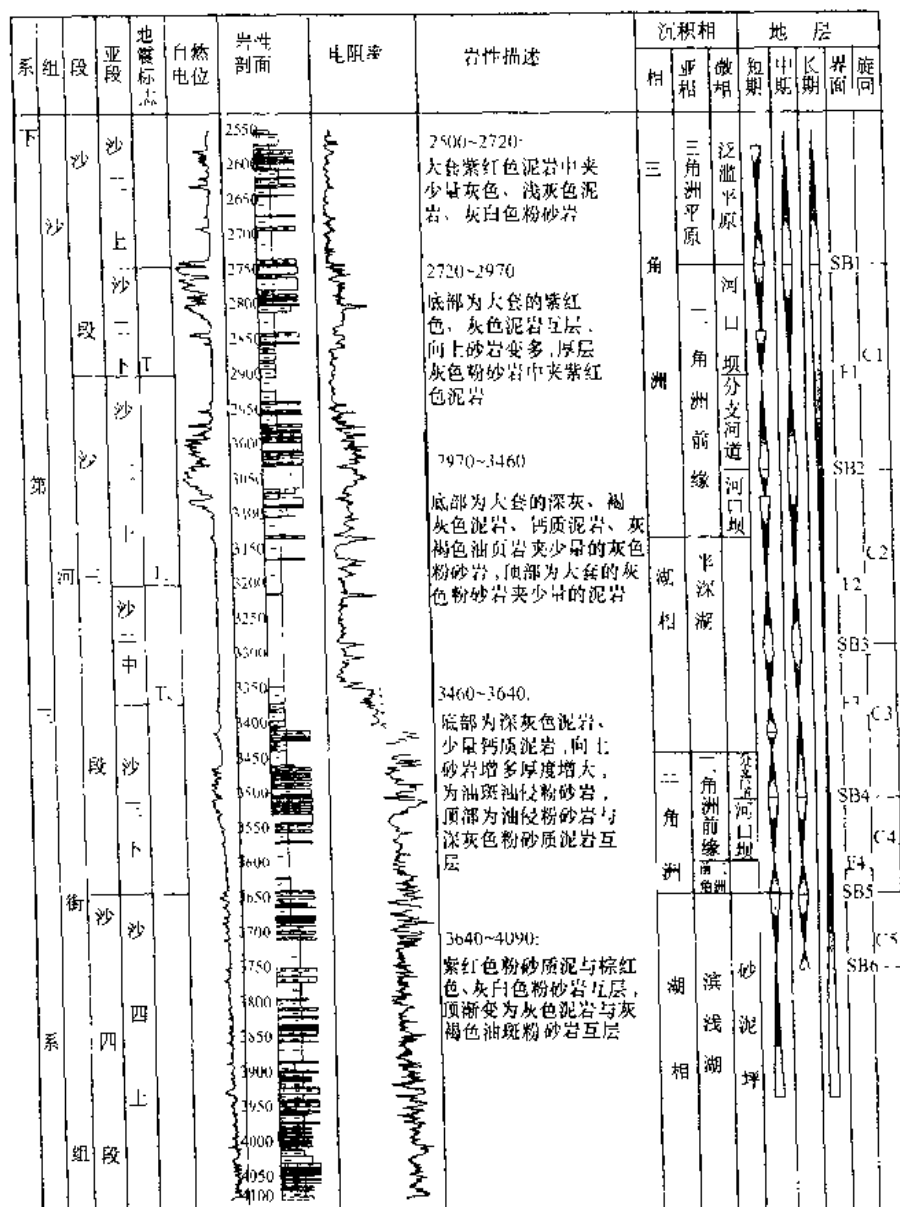 系 组 段 亚段 地震标志 自然电位 岩性剖面 电阻率 岩性描述 沉积相 地 层
相 亚相 微相 短期 中期 长期 界面 旋回
下
第
三
系
沙
河
街
组
沙
二
段
沙
三
段
沙
四
段
沙
二
上
沙
二
下
沙
三
上
沙
三
中
沙
三
下
沙
四
上
2550
2600
2650
2700
2750
2800
2850
2900
2950
3000
3050
3100
3150
3200
3250
3300
3350
3400
3450
3500
3550
3600
3650
3700
3750
3800
3850
3900
3950
4000
4050
4100
2500~2720:
大套紫红色泥岩中夹
少量灰色、浅灰色泥
岩、灰白色粉砂岩
2720~2970
底部为大套的紫红
色、灰色泥岩互层、
向上砂岩变多,厚层
灰色粉砂岩中夹紫红
色泥岩
2970~3460
底部为大套的深灰、褐
灰色泥岩、钙质泥岩、灰
褐色油页岩夹少量的灰色
粉砂岩,顶部为大套的灰
色粉砂岩夹少量的泥岩
3460~3640.
底部为深灰色泥岩、
少量钙质泥岩,向上
砂岩增多厚度增大,
为油斑油侵粉砂岩,
顶部为油侵粉砂岩与
深灰色粉砂质泥岩互
层
3640~4090:
紫红色粉砂质泥与棕红
色、灰白色粉砂岩互层,
顶渐变为灰色泥岩与灰
褐色油斑粉砂岩互层
三角洲
湖相
三角洲
湖相
三角洲平原
三角洲前缘
半深湖
三角洲前缘
前三角洲
滨浅湖
泛滥平原
河口坝
分支河道
河口坝
河口坝
砂泥坪
SB1
C1
F1
SB2
C2
F2
SB3
F3
C3
SB4
C4
F4
SB5
C5
SB6